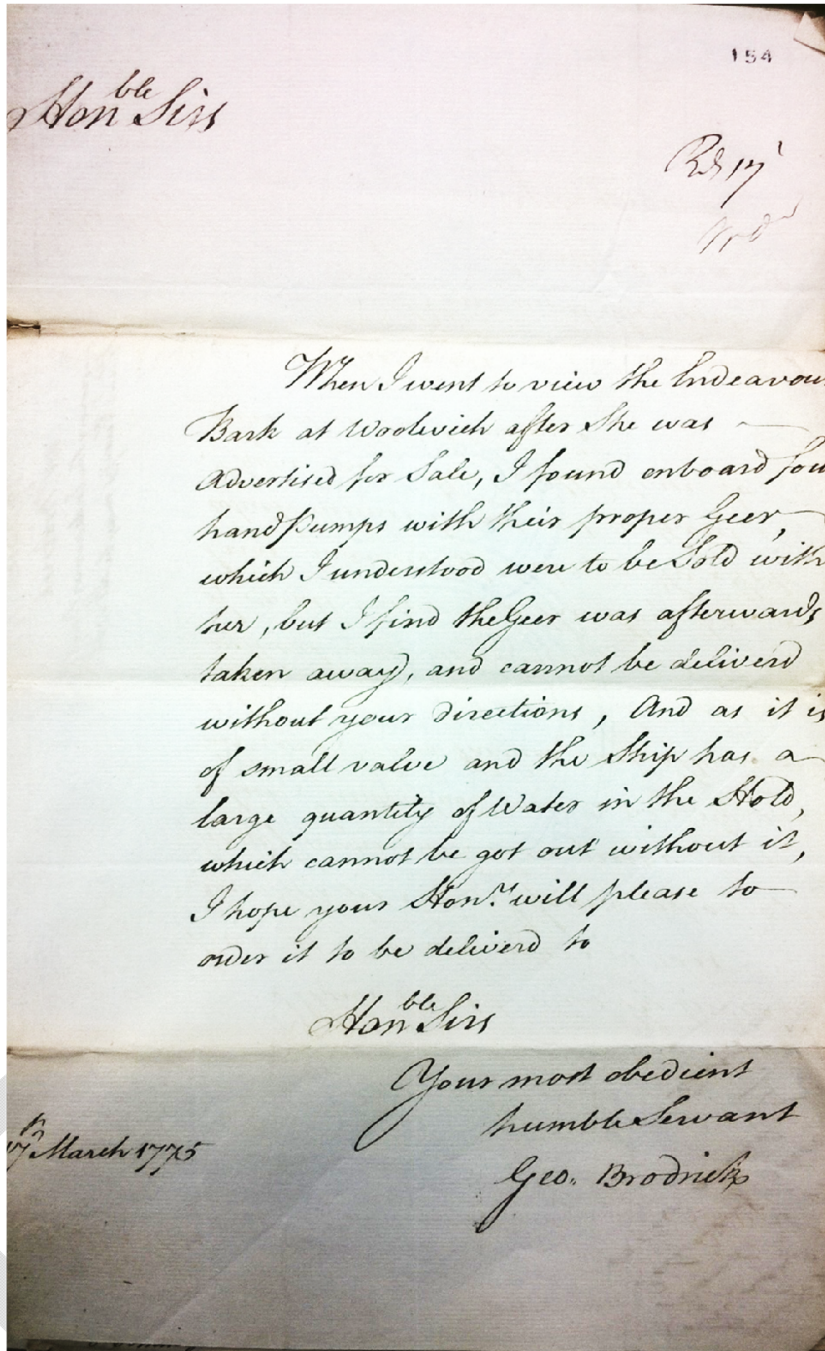 154
Hon.ble Sirs
Rd 17
When I went to view the Endeavou
Bark at Woolwich after She was
Advertised for Sale, I found onboard fou
hand Pumps with their proper Geer,
which I understood were to be Sold with
her, but I find the Geer was afterwards
taken away, and cannot be deliverd
without your directions, And as it is
of small value and the Ship has a
large quantity of Water in the Hold,
which cannot be got out without it,
I hope your Honrs. will please to
order it to be deliverd to
Hon.ble Sirs
Your most obedient
humble Servant
17th March 1775
Geo. Brodrick